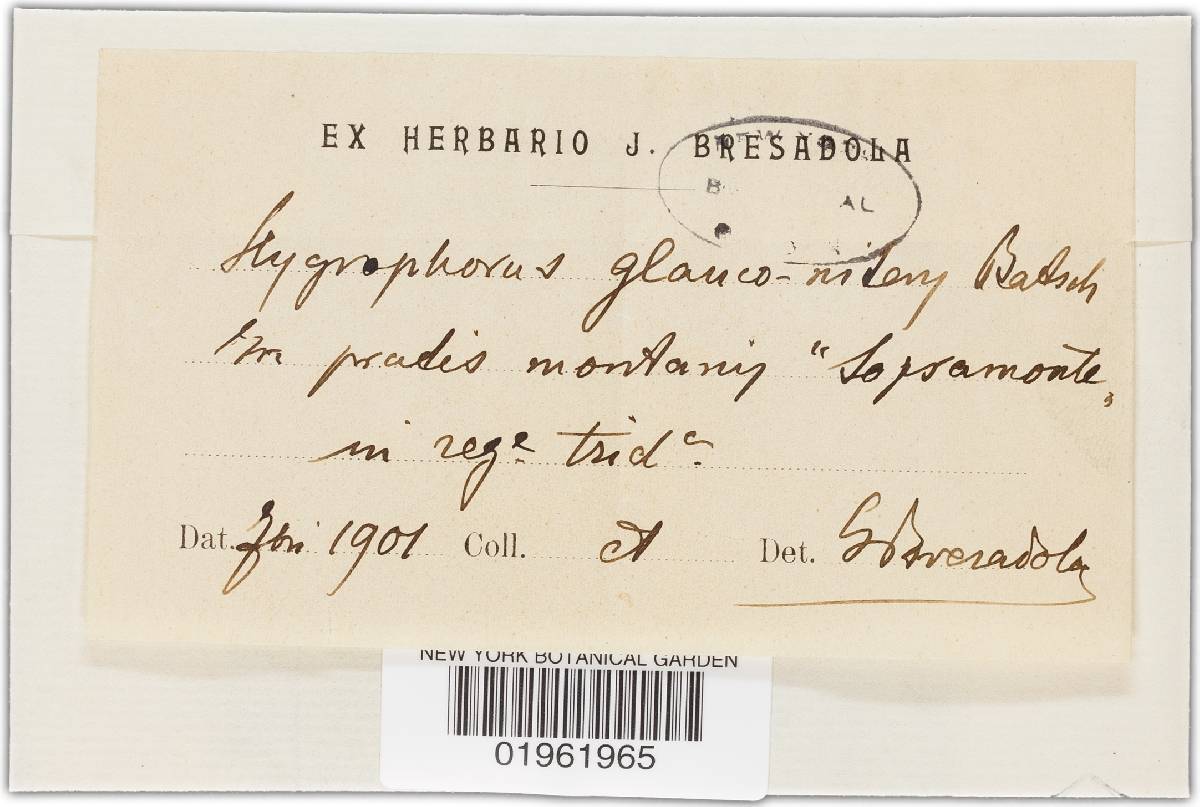 EX HERBARIO J. BRESADOLA
B AL
Hygrophorus glauco-nitens Batsch
In pratis montanis "Sopramonte„
in reg.e trid.a
Dat. 7bri 1901 Coll. A Det. G Bresadola
NEW YORK BOTANICAL GARDEN
01961965